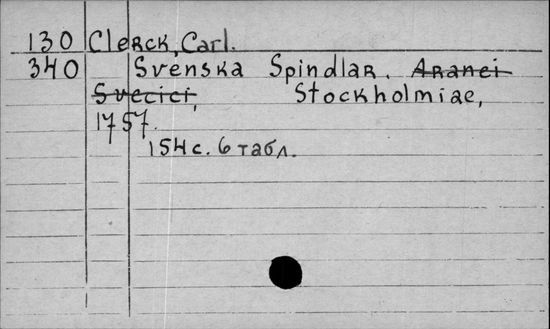 130 Clerck, Carl.
340 Svenska Spindlar. Aranei
Svecici, Stockholmiae,
1757.
154 с. 6 табл.